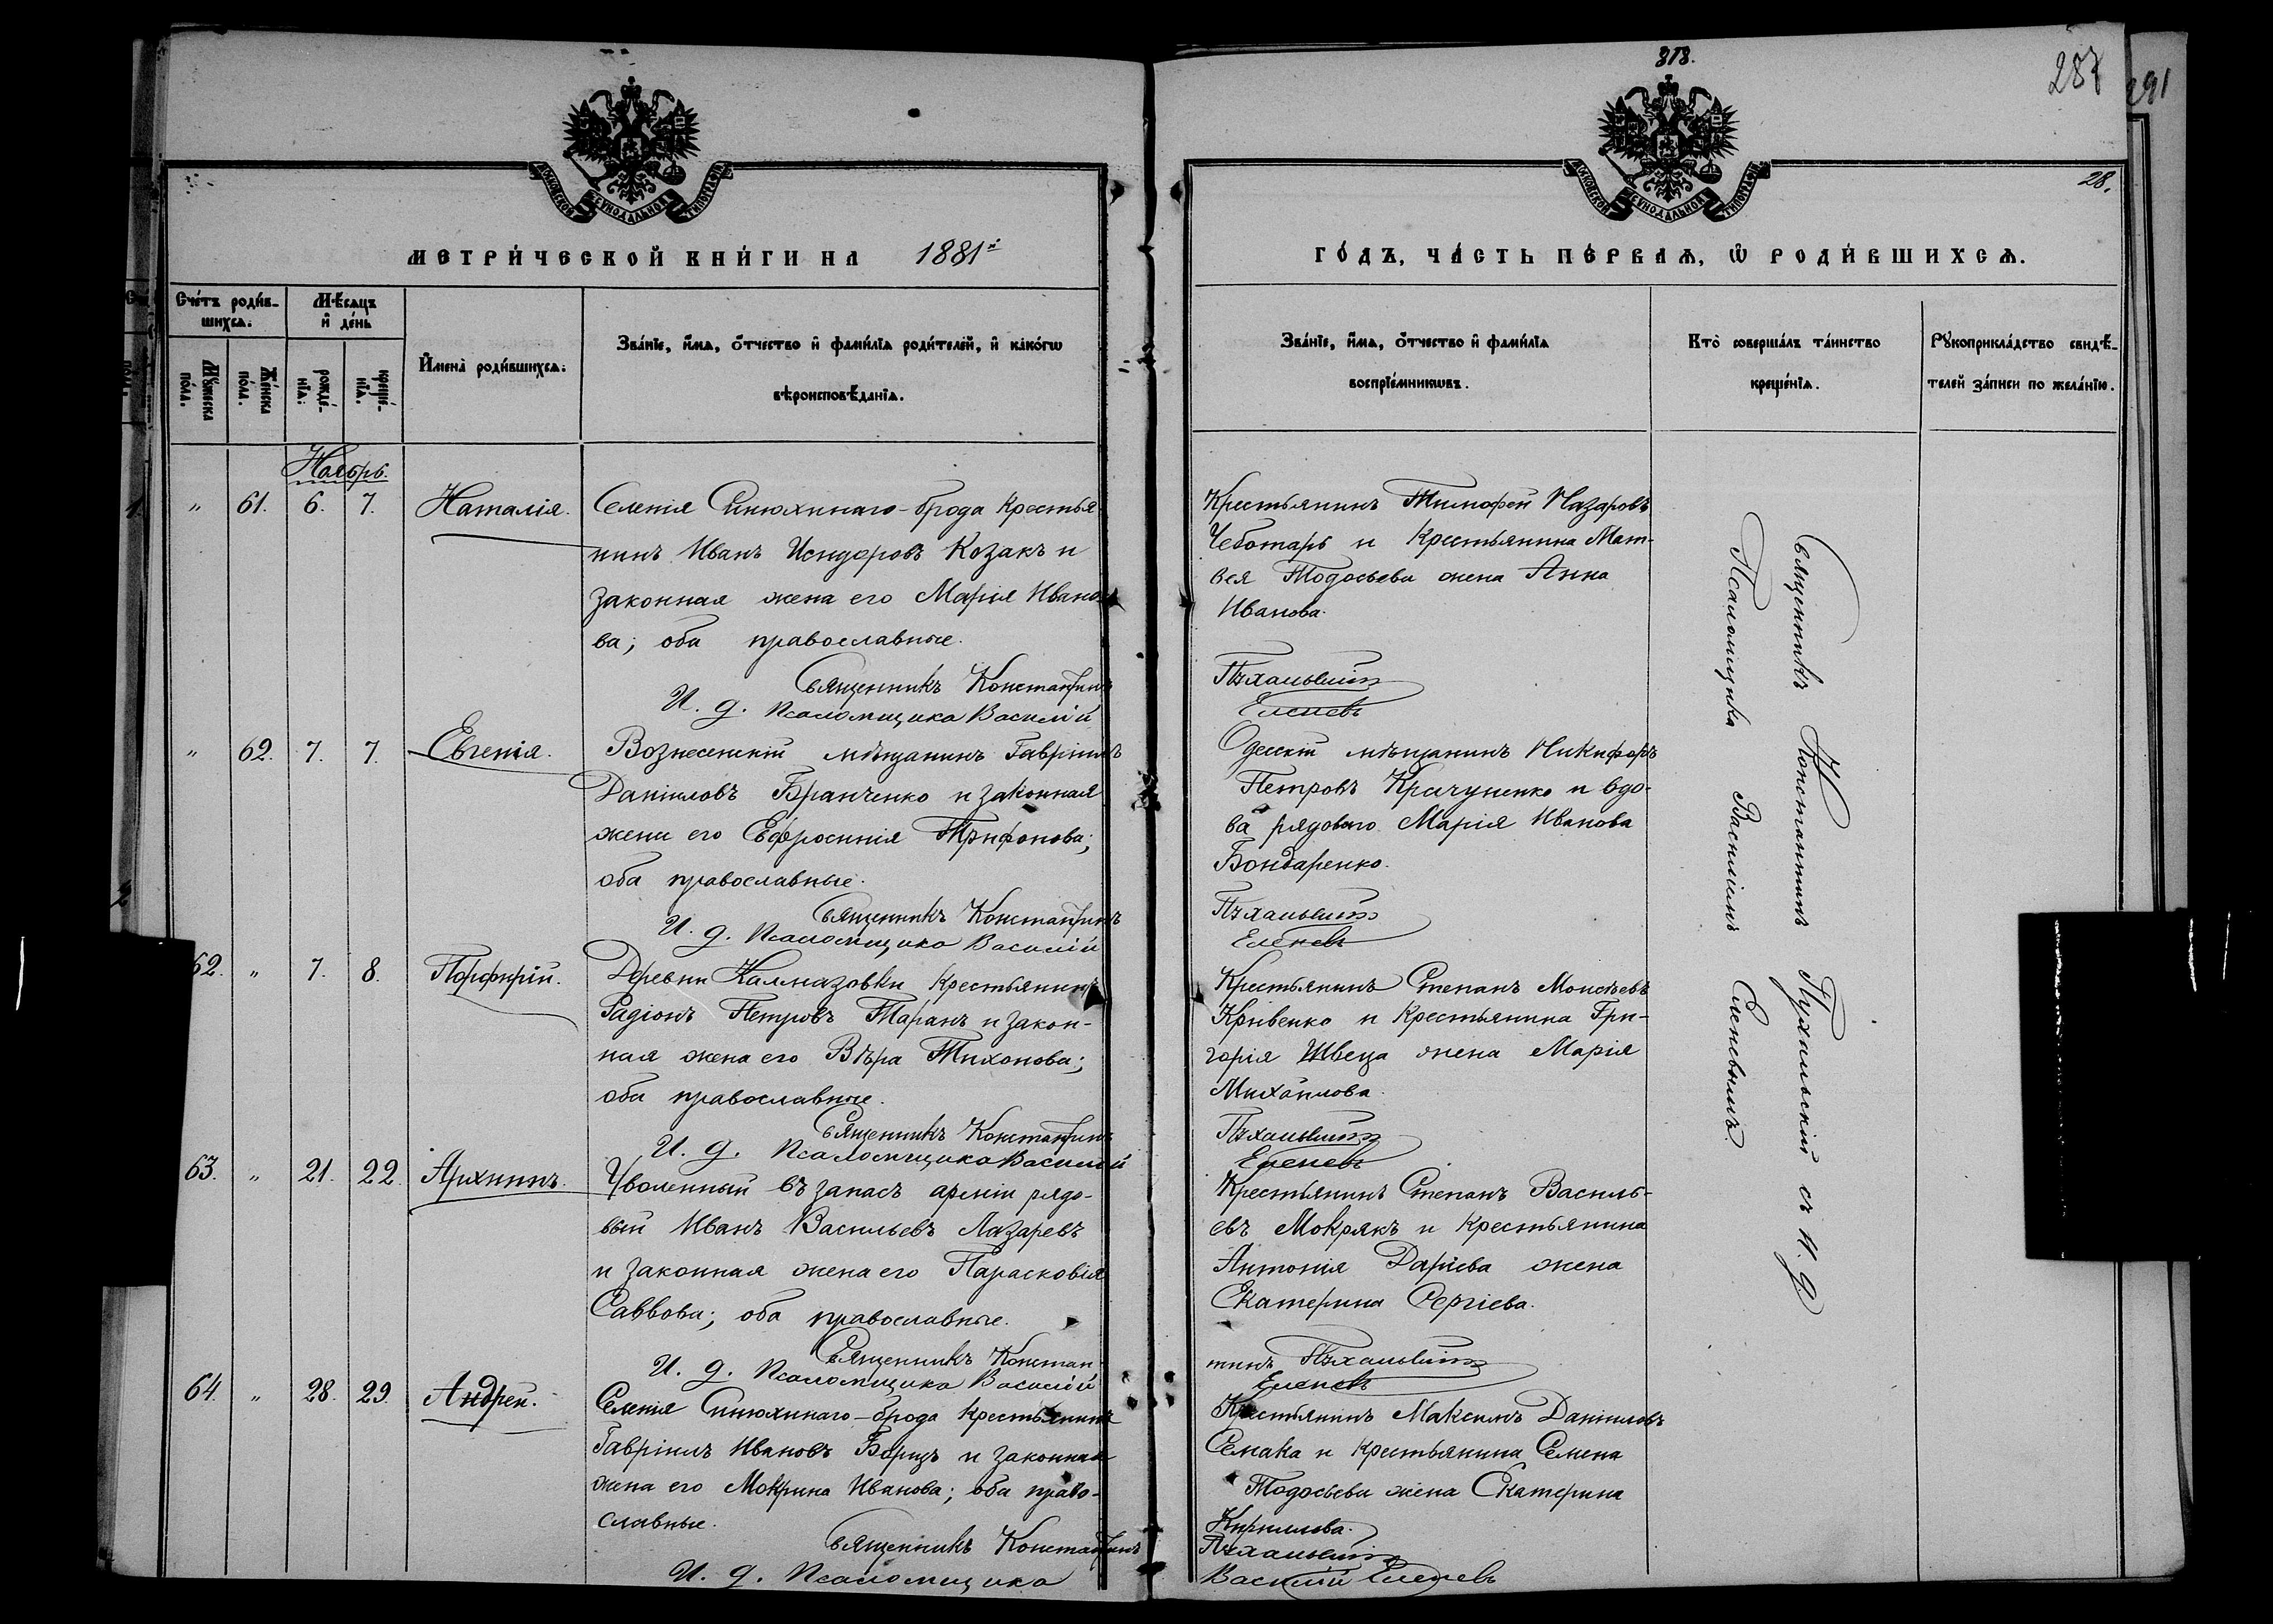 313.
287
291
28.
МОСКОВСКОЙ СѴНОДАЛЬНОЙ ТИПОГРАФІИ
МОСКОВСКОЙ СѴНОДАЛЬНОЙ ТИПОГРАФІИ
МЕТРИ́ЧЕСКОЙ КНИ́ГИ НА 1881й
ГО́ДЪ, ЧА́СТЬ ПЕ́РВАѦ, Ѿ РОДИ́ВШИХСѦ.
Сче́тъ роди́в-
шихсѧ.
Мѣ́сѧцъ
и҆ де́нь
Мꙋ́жеска
по́ла.
Же́нска
по́ла.
рожде́-
нїѧ.
креще́-
нїѧ.
И҆мена̀ роди́вшихсѧ.
Зва́нїе, и҆́мѧ, ѻ҆́тчество и҆ фами́лїѧ роди́телей, и҆ како́гѡ
вѣроисповѣ́данїѧ.
Зва́нїе, и҆́мѧ, ѻ҆́тчество и҆ фами́лїѧ
воспрїе́мникѡвъ.
Кто̀ соверша́лъ та́инство
креще́нїѧ.
Рꙋкоприкла́дство свидѣ́-
телей за́писи по жела́нїю.
Ноябрь.
„ 61. 6. 7. Наталія.
Селенія Синюхинаго-брода Крестья
нинъ Иванъ Исидоровъ Козакъ и
законная жена его Марія Ивано
ва; оба православные.
Священникъ Константинъ
И. д. Псаломщика Василій
Крестьянинъ Тимофей Назаровъ
Чеботарь и Крестьянина Мат-
вея Тодосьева жена Анна
Иванова.
Пухальскій
Еленевъ
„ 62. 7. 7. Евгенія.
Вознесенскій мѣщанинъ Гавріилъ
Даніиловъ Бранченко и законная
жена его Евфросинія Трифонова;
оба православные.
Священникъ Константинъ
И. д. Псаломщика Василій
Одесскій мѣщанинъ Никифоръ
Петровъ Крачуненко и вдо-
ва рядоваго Марія Иванова
Бондаренко.
Пухальскій
Еленевъ
62. „ 7. 8. Порфирій.
Деревни Калмазовки Крестьянинъ
Радіонъ Петровъ Таранъ и закон-
ная жена его Вѣра Тихонова;
оба православные.
Священникъ Константинъ
И. д. Псаломщика Василій
Крестьянинъ Степанъ Моисеевъ
Кривенко и Крестьянина Гри-
горія Швеца жена Марія
Михайлова.
Пухальскій
Еленевъ
63. „ 21. 22. Архипъ.
Уволенный въ запасъ арміи рядо-
вый Иванъ Васильевъ Лазаревъ
и законная жена его Парасковія
Саввова; оба православные.
Священникъ Констан-
И. д. Псаломщика Василій
Крестьянинъ Степанъ Василь-
евъ Мокрякъ и Крестьянина
Антонія Даріева жена
Екатерина Сергіева.
тинъ Пухальскій
Еленевъ
64. „ 28. 29. Андрей.
Селенія Синюхинаго-брода Крестьянинъ
Гавріилъ Ивановъ Борщъ и законная
жена его Мокрина Иванова; оба право-
славные.
Священникъ Константинъ
И. д. Псаломщика
Крестьянинъ Максимъ Даніиловъ
Семака и Крестьянина Семена
Тодосьева жена Екатерина
Кирилова.
Пухальскій
Василій Еленевъ
Священникъ Константинъ Пухальскій съ И. д.
Псаломщика Василіемъ Еленевымъ.